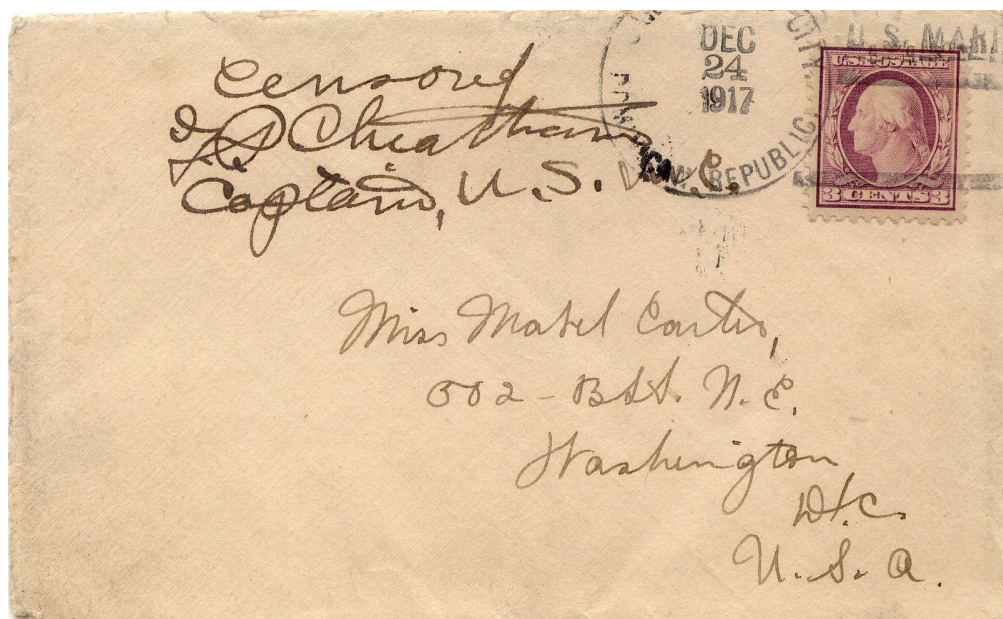 Censored
Cheatham
Captain, U.S. M.C.
DEC
24
1917
CITY
REPUBLIC
U.S. MARI
U.S. POSTAGE
3 CENTS 3
Miss Mabel Carter,
502 - B St. N.E.
Washington
D.C.
U.S.A.